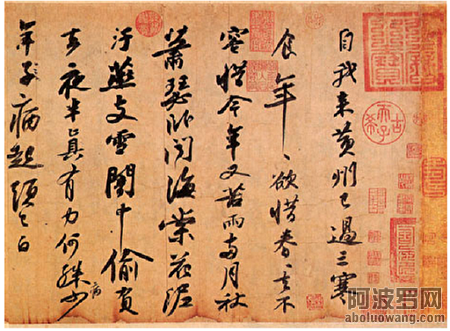 自我來黃州已過三寒
食年〻欲惜春〻去不
容惜今年又苦雨兩月秋
蕭瑟臥聞海棠花泥
汙燕支雪闇中偷負
去夜半真有力何殊少
病
年子病起頭已白
古希天子
阿波罗网
aboluowang.com